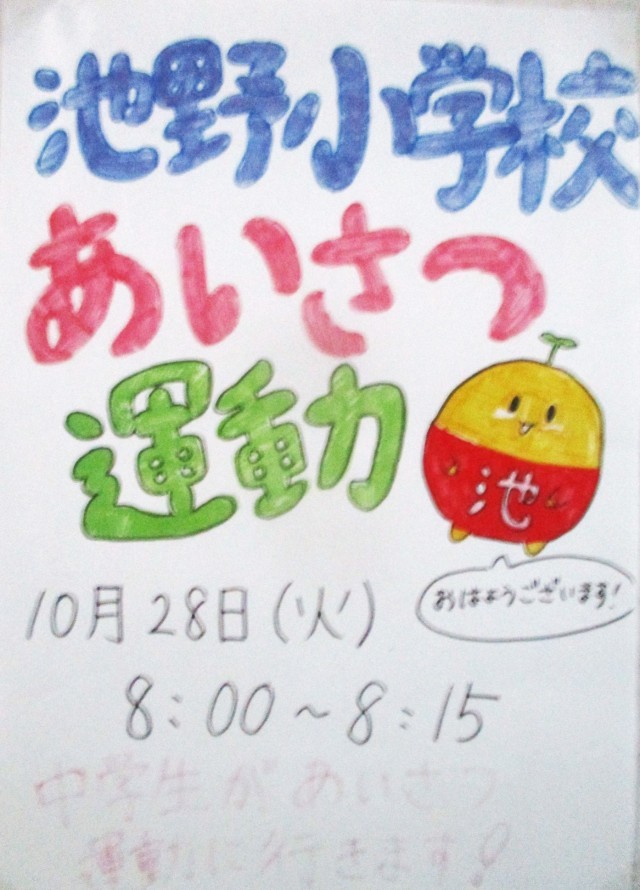 池野小学校
あいさつ
運動
池
おはようございます!
10月28日(火)
8:00~8:15
中学生があいさつ
運動に行きます!